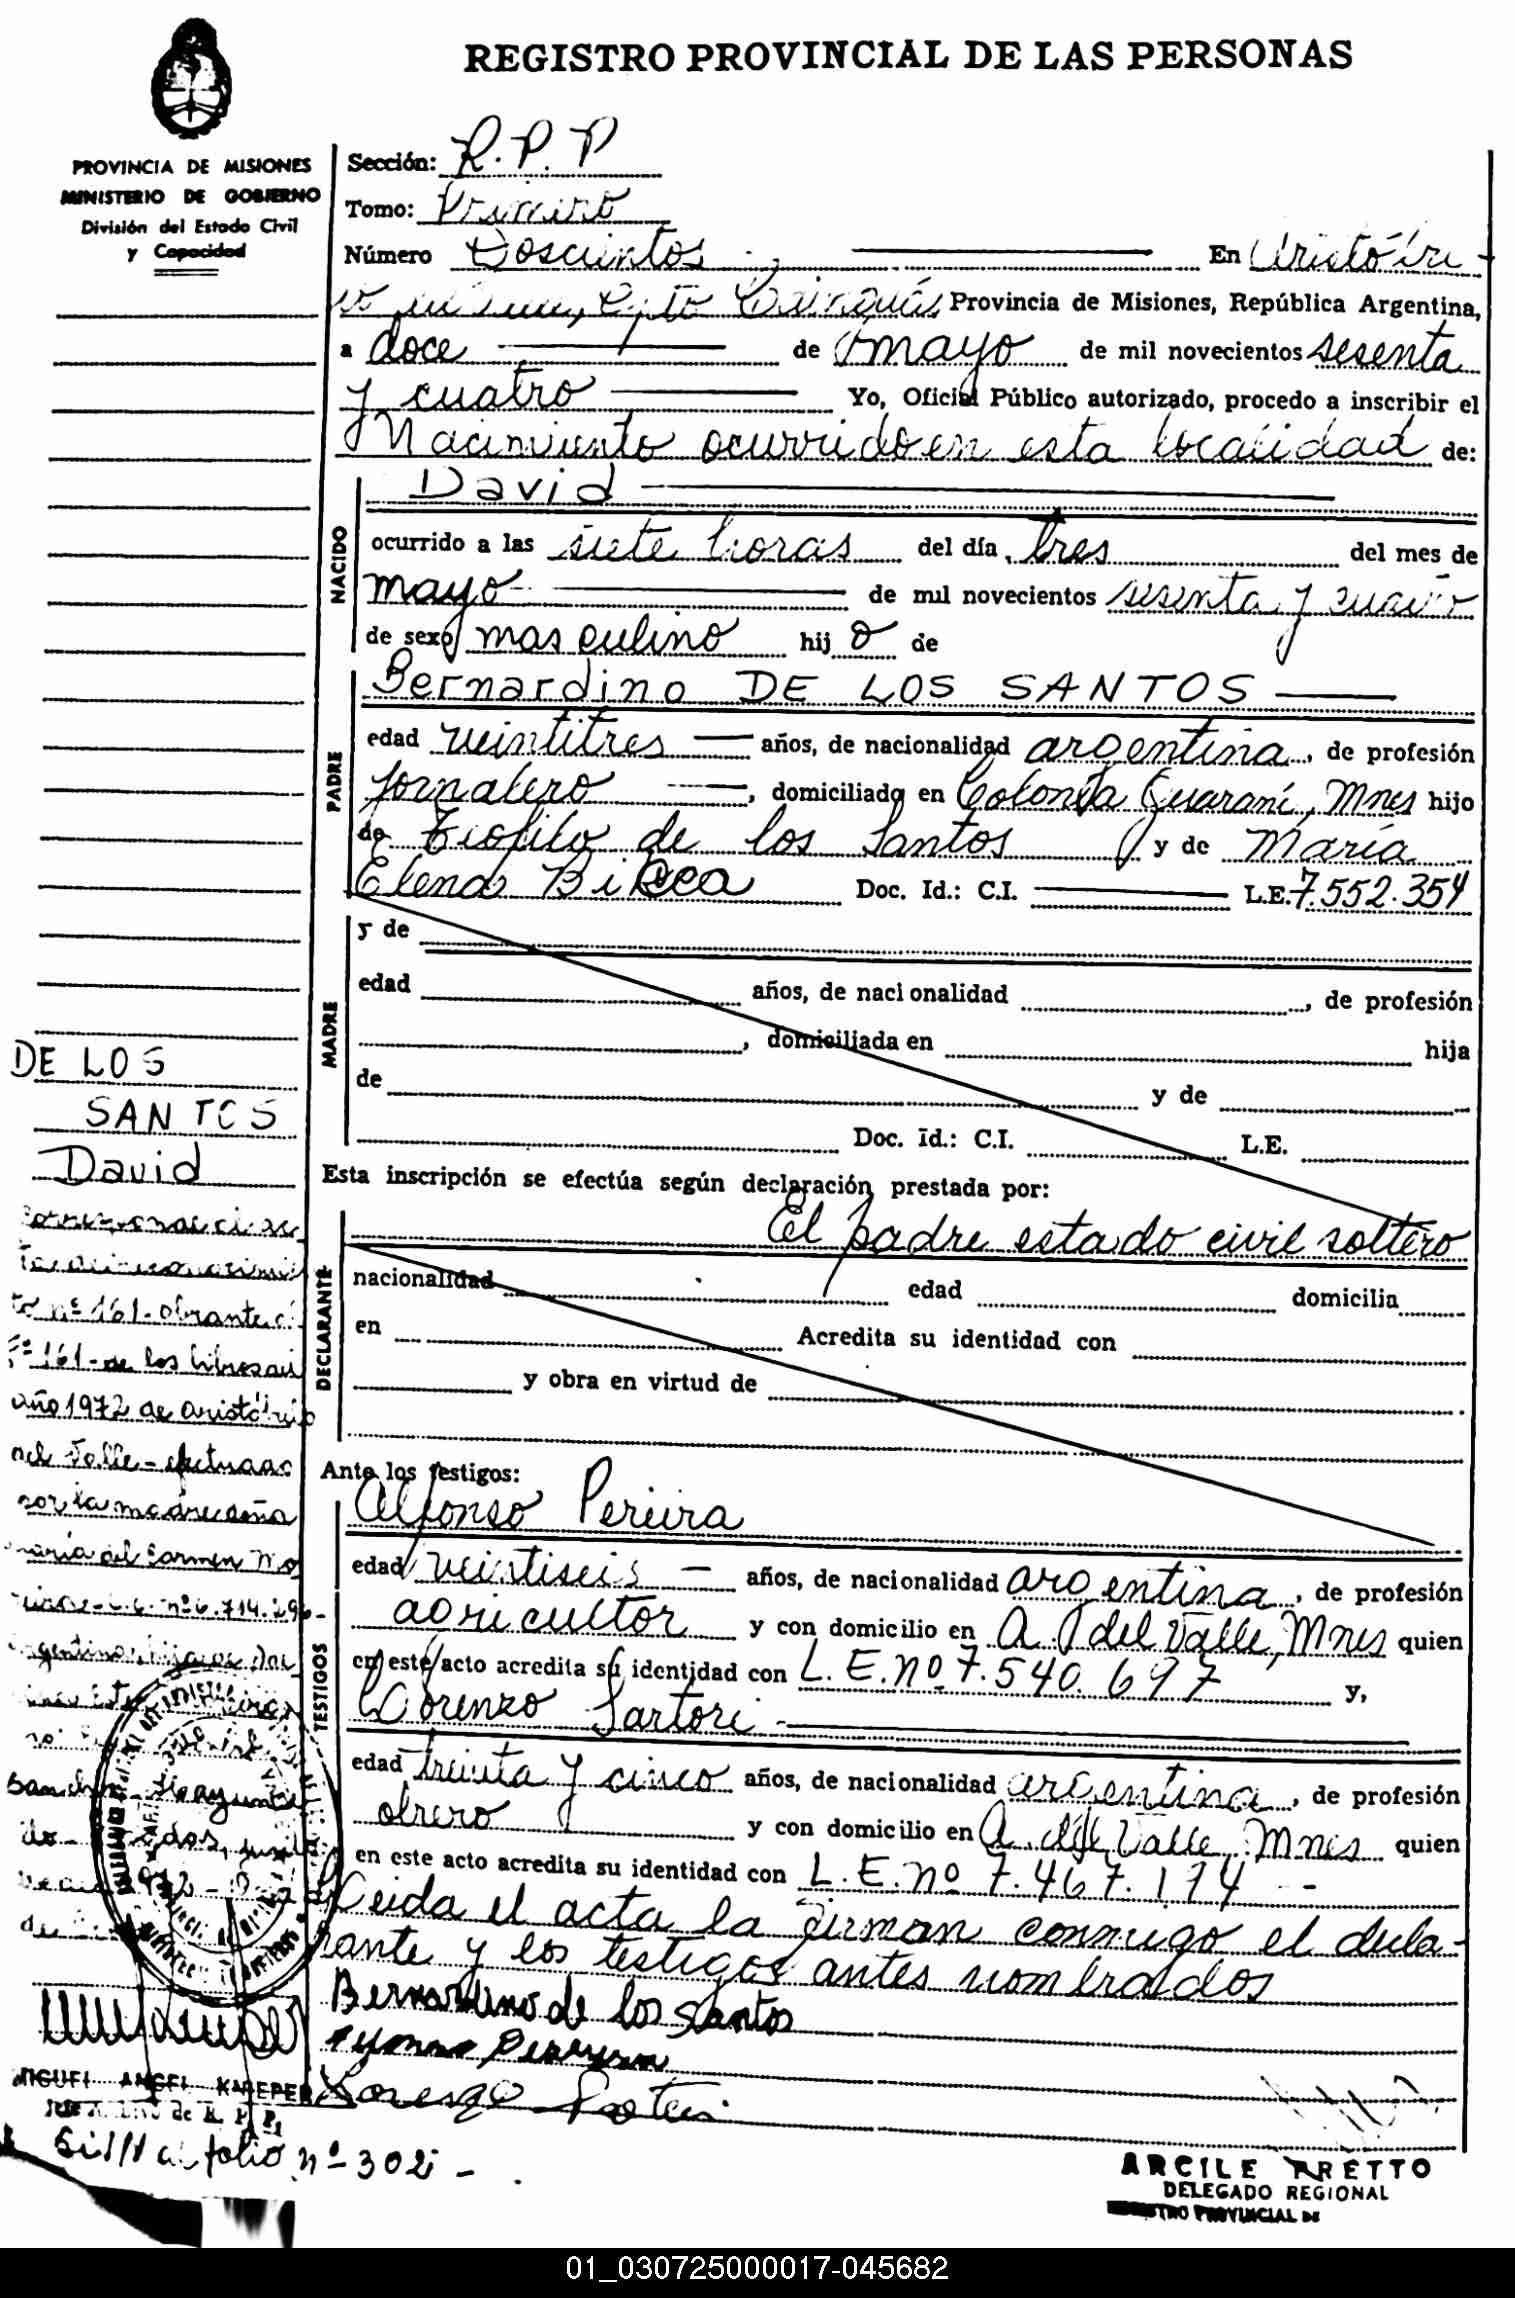 REGISTRO PROVINCIAL DE LAS PERSONAS
PROVINCIA DE MISIONES
MINISTERIO DE GOBIERNO
División del Estado Civil
y Capacidad
Sección: R.P.P
Tomo: Primero
Número Doscientos En Aristóbu-
Provincia de Misiones, República Argentina,
a doce de mayo de mil novecientos sesenta
y cuatro Yo, Oficial Público autorizado, procedo a inscribir el
Nacimiento ocurrido en esta localidad de:
NACIDO
David
ocurrido a las siete horas del día tres del mes de
mayo de mil novecientos sesenta y cuatro
de sexo masculino hijo de
PADRE
Bernardino DE LOS SANTOS
edad veintitres años, de nacionalidad argentina, de profesión
jornalero, domiciliado en Colonia Guaraní, Mnes hijo
de Teofilo de los Santos y de María
Elena Doc. Id.: C.I. L.E. 7.552.354
MADRE
y de
edad años, de nacionalidad , de profesión
, domiciliada en hija
de y de
Doc. Id.: C.I. L.E.
Esta inscripción se efectúa según declaración prestada por:
DECLARANTE
El padre estado civil soltero
nacionalidad edad domicilia
en Acredita su identidad con
y obra en virtud de
Ante los testigos:
TESTIGOS
Alfonso Pereira
edad veintiseis años, de nacionalidad argentina, de profesión
agricultor y con domicilio en A. del Valle, Mnes quien
en este acto acredita su identidad con L.E. nº 7.540.697 y,
Lorenzo Sartori
edad treinta y cinco años, de nacionalidad argentina, de profesión
obrero y con domicilio en A. del Valle, Mnes quien
en este acto acredita su identidad con L.E. nº 7.467.174
Leida el acta la firman conmigo el decla-
rante y los testigos antes nombrados
Bernardino de los Santos
DE LOS
SANTOS
David
to nº 161 - obrante al
Fº 161 - de los libros del
año 1972 de Aristóbulo
del Valle - efectuado
por la madre doña
María del Carmen
nº 6.714.296-
MIGUEL ANGEL
al folio nº 302
DELEGADO REGIONAL
REGISTRO PROVINCIAL DE
01_030725000017-045682